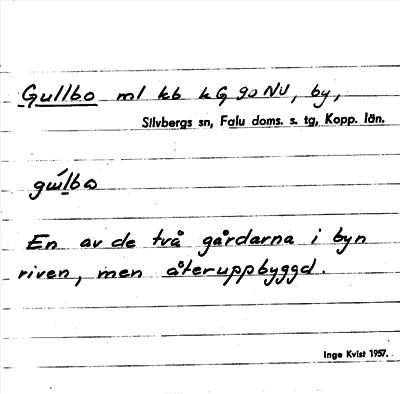 Gullbo ml kb kG go NV, by,
Silvbergs sn, Falu doms. s. tg, Kopp. län.
gúlbo
En av de två gårdarna i byn
riven, men återuppbyggd.
Inge Kvist 1957.